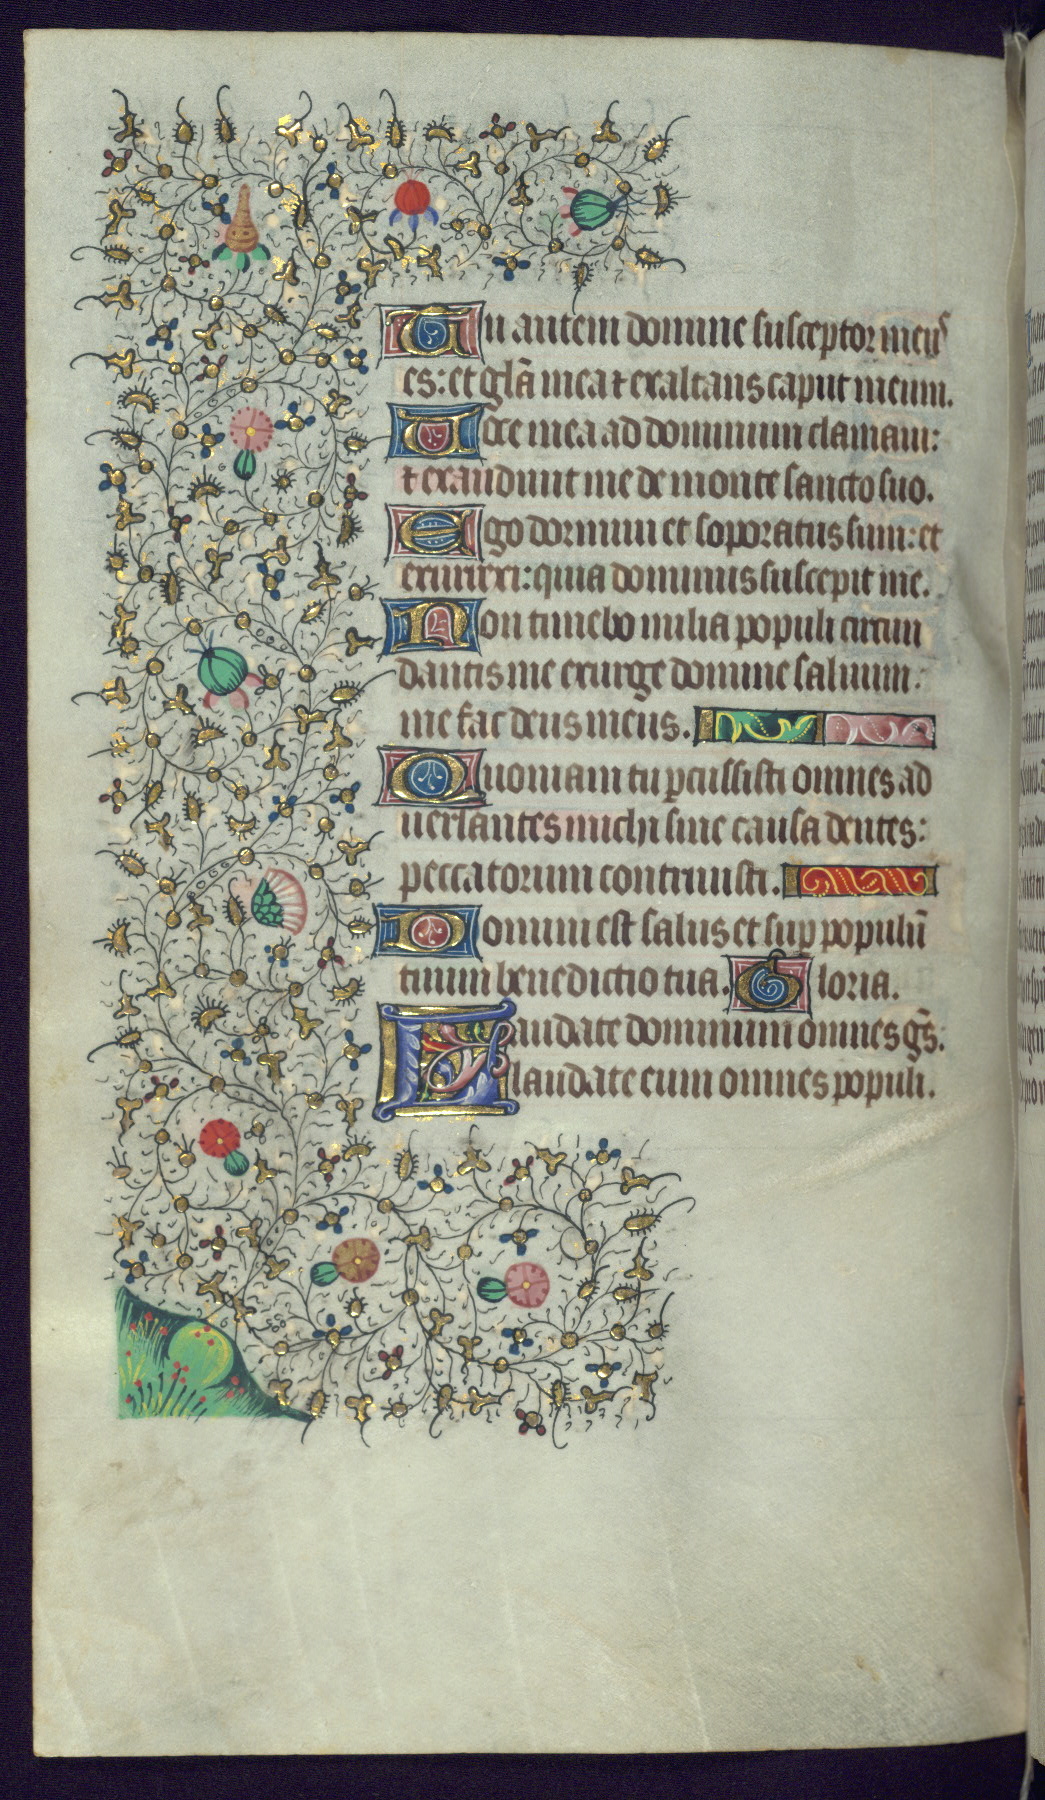 Tu autem domine susceptor meus
es: et glã mea ⁊ exaltans caput meum.
Uoce mea ad dominum clamaui:
⁊ exaudiuit me de monte sancto suo.
Ego dormiui et soporatus sum: et
exurrexi: quia dominus suscepit me.
Non timebo milia populi circun
dantis me exurge domine saluum
me fac deus meus.
Quoniam tu ꝑcussisti omnes ad
uersantes michi sine causa dentes:
peccatorum contriuisti.
Domini est salus et suꝑ populũ
tuum benedictio tua. Gloria.
Laudate dominum omnes gẽs:
laudate eum omnes populi.